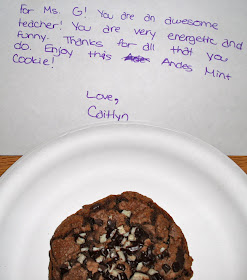 For Ms. G! You are an awesome
teacher! You are very energetic and
funny. Thanks for all that you
do. Enjoy this Andes Mint
Cookie!
Love,
Caitlyn